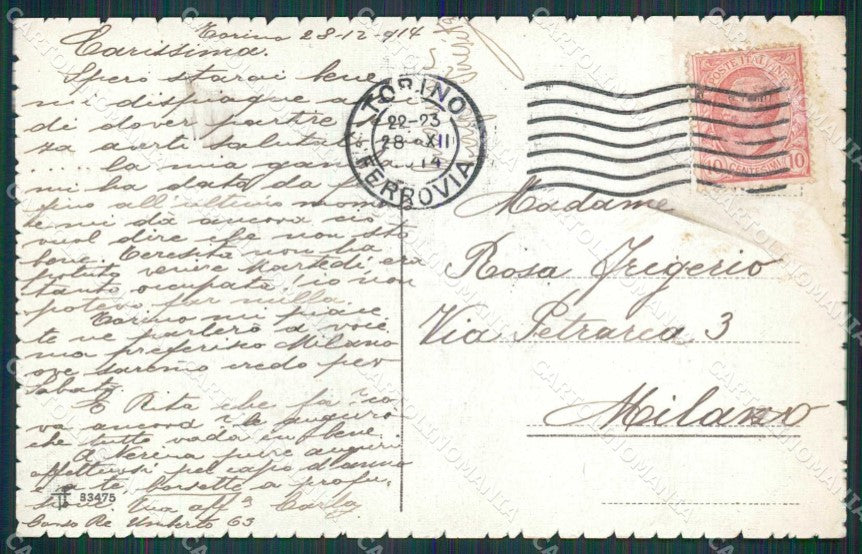 Torino 28-12-914
Carissima.
Spero starai bene
mi dispiaque
di dover partire
za averti salutat
.... la mia
mi ha dato da
fino all'ultimo mom
te mi dà ancora ciò
vuol dire che non sto
bene. Teresita non ha
potuto venire Martedì era
tanto occupata io non
potevo far nulla.
Torino mi piace
te ne parlerò a voce
ma preferisco Milano
ove saremo credo per
Sabato.
E Rita che fa
va ancora le auguro
che tutto vada in bene.
A pure auguri
affettuosi pel capo d'anno
e a te a profu
sione. Tua affa
Corso Re Umberto 63
83475
TORINO
22-23
28 XII
14
FERROVIA
POSTE ITALIANE
CENTESIMI 10
Madame
Rosa Frigerio
Via Petrarca 3
Milano
CARTOLINOMANIA